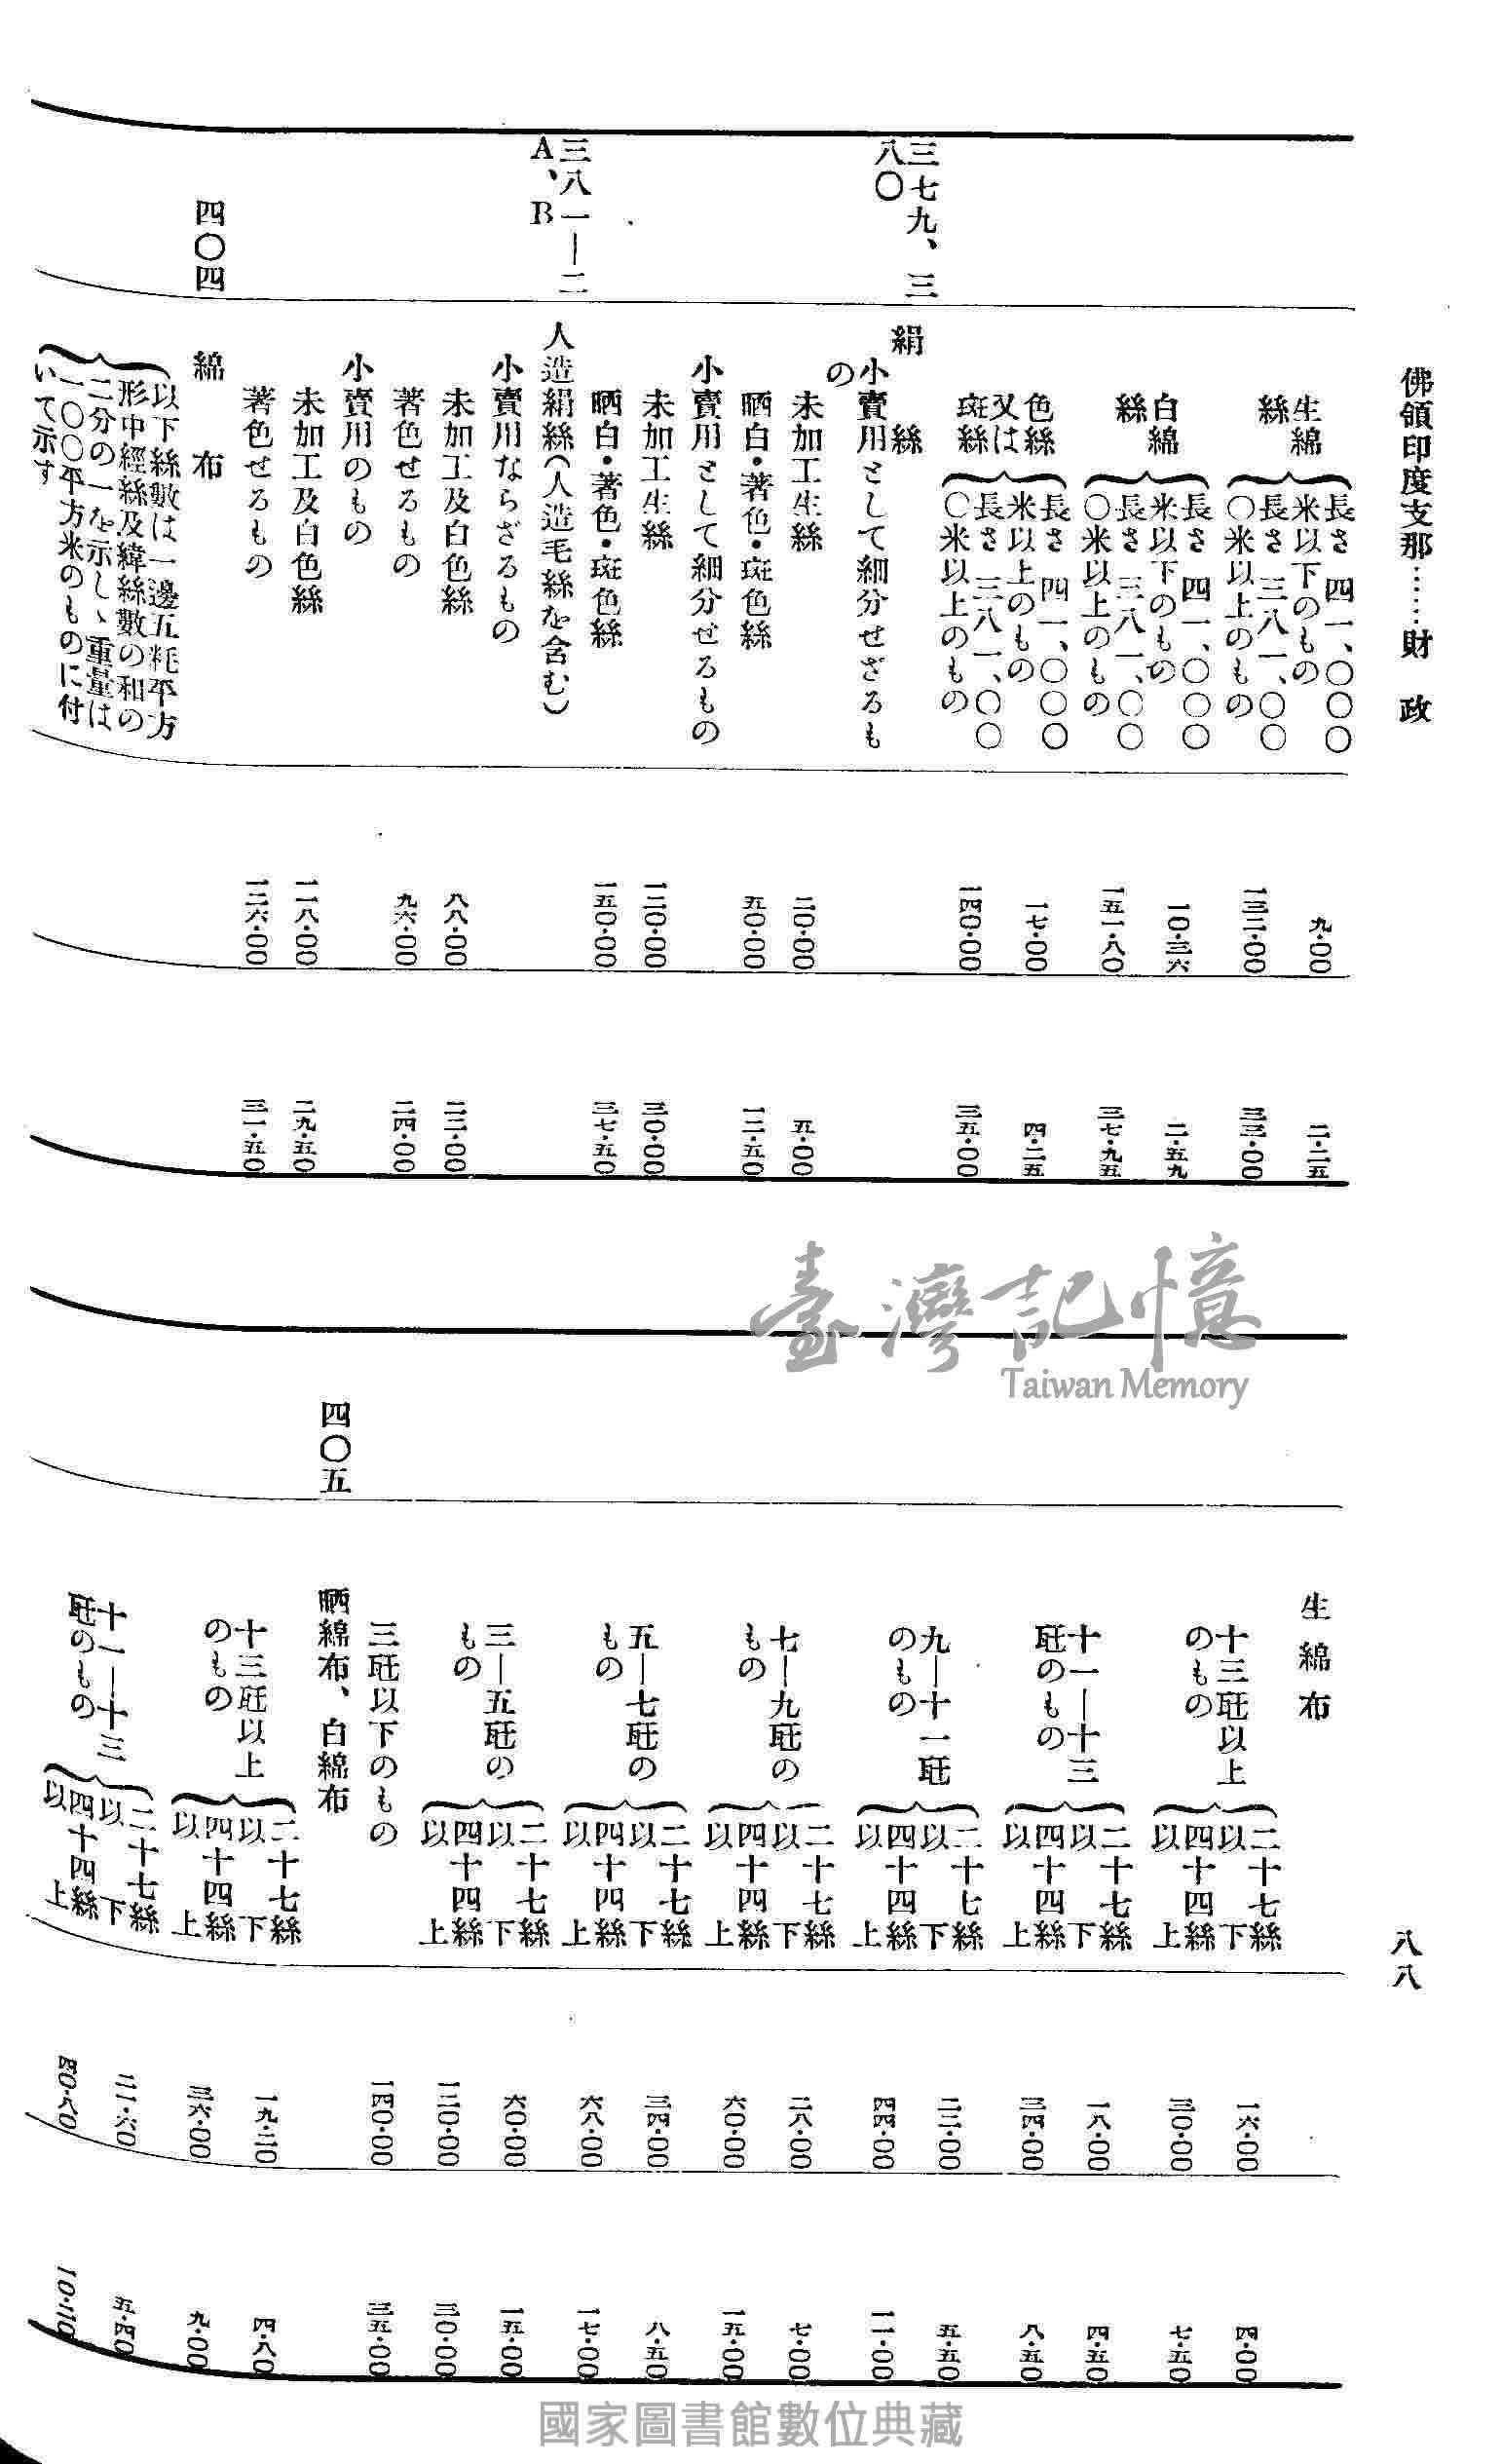 佛領印度支那……財政
八八
生綿絲
長さ四一、〇〇〇米以下のもの 九・〇〇 二・二五
長さ三八一、〇〇〇米以上のもの 一三二・〇〇 三三・〇〇
白綿絲
長さ四一、〇〇〇米以下のもの 一〇・三六 二・五九
長さ三八一、〇〇〇米以上のもの 一五一・八〇 三七・九五
色絲又は斑絲
長さ四一、〇〇〇米以上のもの 一七・〇〇 四・二五
長さ三八一、〇〇〇米以上のもの 一四〇・〇〇 三五・〇〇
三七九、三八〇 絹絲
小賣用として細分せざるもの
未加工生絲 二〇・〇〇 五・〇〇
晒白・著色・斑色絲 五〇・〇〇 一二・五〇
小賣用として細分せるもの
未加工生絲 一二〇・〇〇 三〇・〇〇
晒白・著色・斑色絲 一五〇・〇〇 三七・五〇
三八一—二A、B 人造絹絲(人造毛絲を含む)
小賣用ならざるもの
未加工及白色絲 八八・〇〇 二二・〇〇
著色せるもの 九六・〇〇 二四・〇〇
小賣用のもの
未加工及白色絲 一一八・〇〇 二九・五〇
著色せるもの 一二六・〇〇 三一・五〇
四〇四 綿布
以下絲數は一邊五粍平方
形中經絲及緯絲數の和の
二分の一を示し、重量は
一〇〇平方米のものに付
いて示す
生綿布
十三瓩以上のもの
二十七絲以下 一六・〇〇 四・〇〇
四十四絲以上 三〇・〇〇 七・五〇
十一—十三瓩のもの
二十七絲以下 一八・〇〇 四・五〇
四十四絲以上 三四・〇〇 八・五〇
九—十一瓩のもの
二十七絲以下 二二・〇〇 五・五〇
四十四絲以上 四四・〇〇 一一・〇〇
七—九瓩のもの
二十七絲以下 二八・〇〇 七・〇〇
四十四絲以上 六〇・〇〇 一五・〇〇
五—七瓩のもの
二十七絲以下 三四・〇〇 八・五〇
四十四絲以上 六八・〇〇 一七・〇〇
三—五瓩のもの
二十七絲以下 六〇・〇〇 一五・〇〇
四十四絲以上 一二〇・〇〇 三〇・〇〇
三瓩以下のもの 一四〇・〇〇 三五・〇〇
四〇五 晒綿布、白綿布
十三瓩以上のもの
二十七絲以下 一九・二〇 四・八〇
四十四絲以上 三六・〇〇 九・〇〇
十一—十三瓩のもの
二十七絲以下 二一・六〇 五・四〇
四十四絲以上 四〇・八〇 一〇・二〇
臺灣記憶
Taiwan Memory
國家圖書館數位典藏